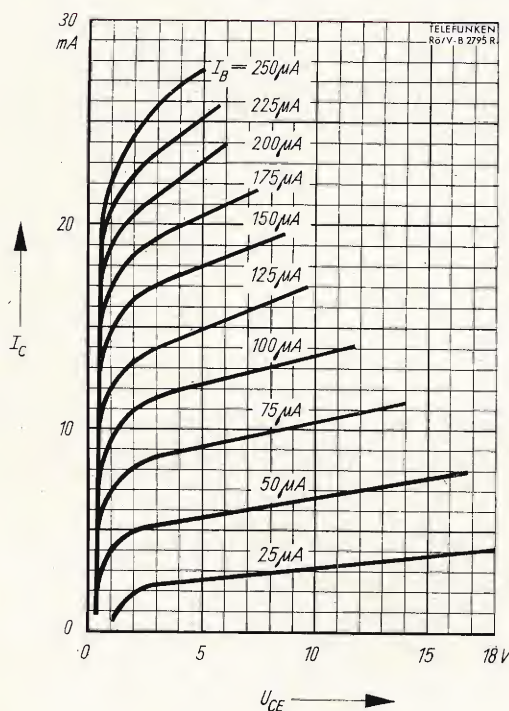 30
mA
TELEFUNKEN
Rö/V-B 2795 R
I_B = 250µA
225µA
200µA
20
175µA
150µA
125µA
I_C
100µA
10
75µA
50µA
25µA
0
0
5
10
15
18 V
U_CE